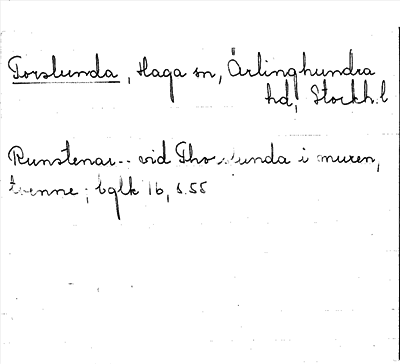 Torslunda, Haga sn, Ärlinghundra
hd, Stockh. l
Runstenar.. vid Thorslunda i muren,
tvenne; bglk 16, s. 55